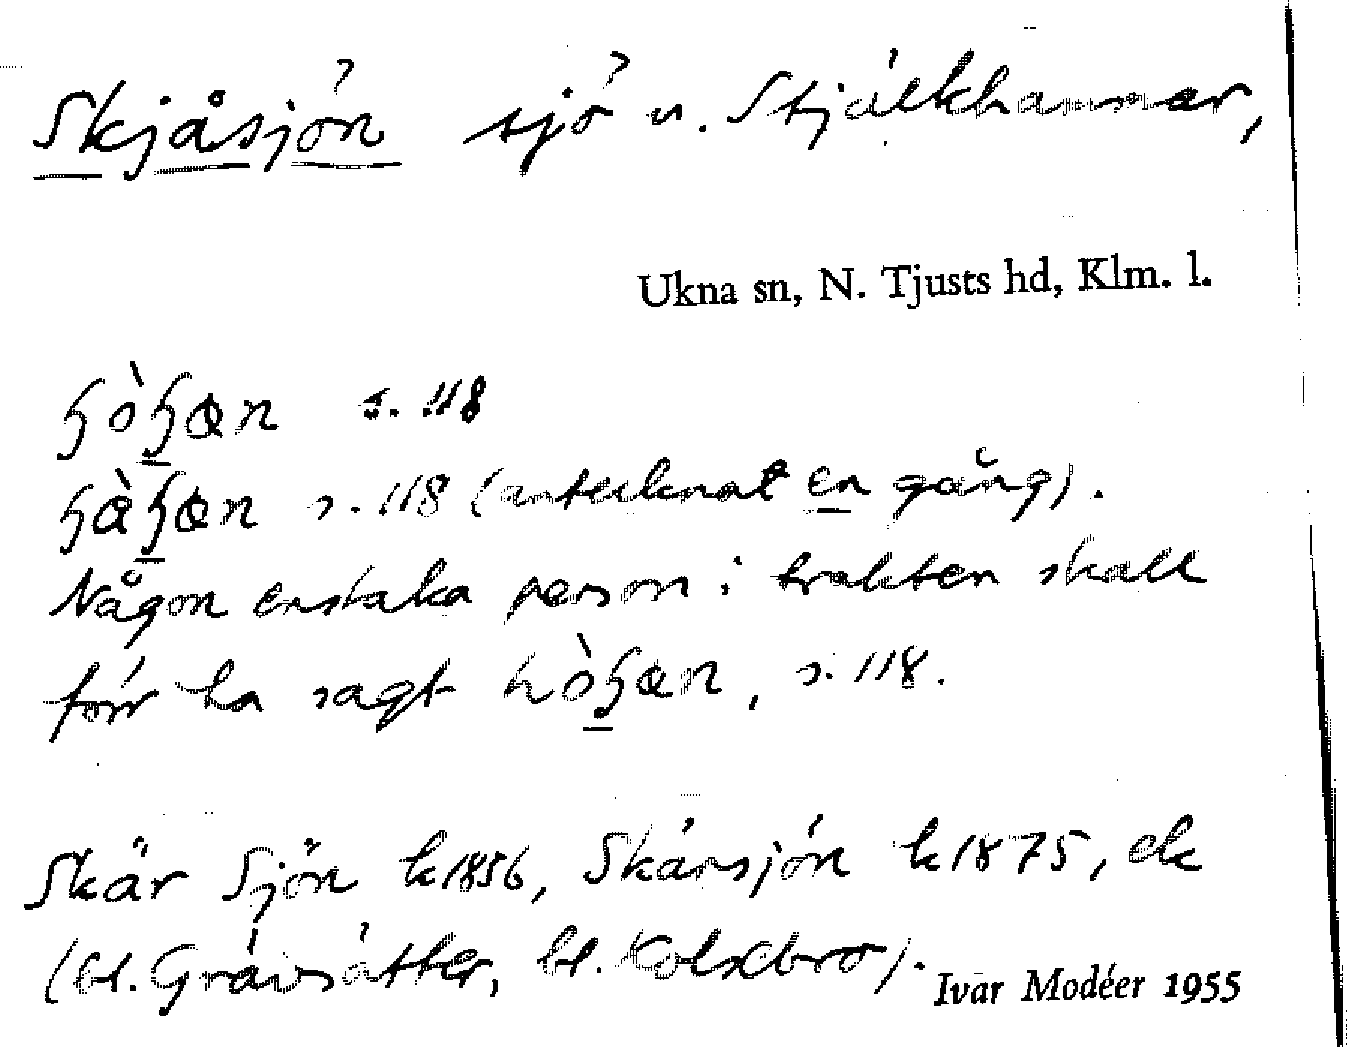 Skjåsjön sjö n. Stjälkhammar,
Ukna sn, N. Tjusts hd, Klm. l.
s. 118
s. 118 (antecknat en gång).
Någon enstaka person i trakten skall
förr ha sagt , s. 118.
Skär Sjön k 1856, Skärsjön k 1875, ek
(bl. Grävsätter, bl. Kolsebro).
Ivar Modéer 1955